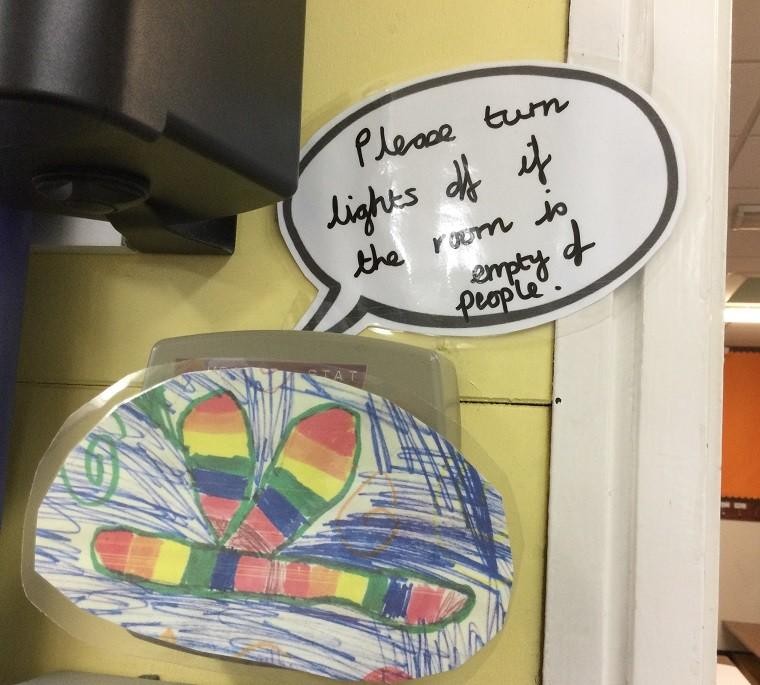 Please turn
lights off if
the room is
empty of
people.
STAT